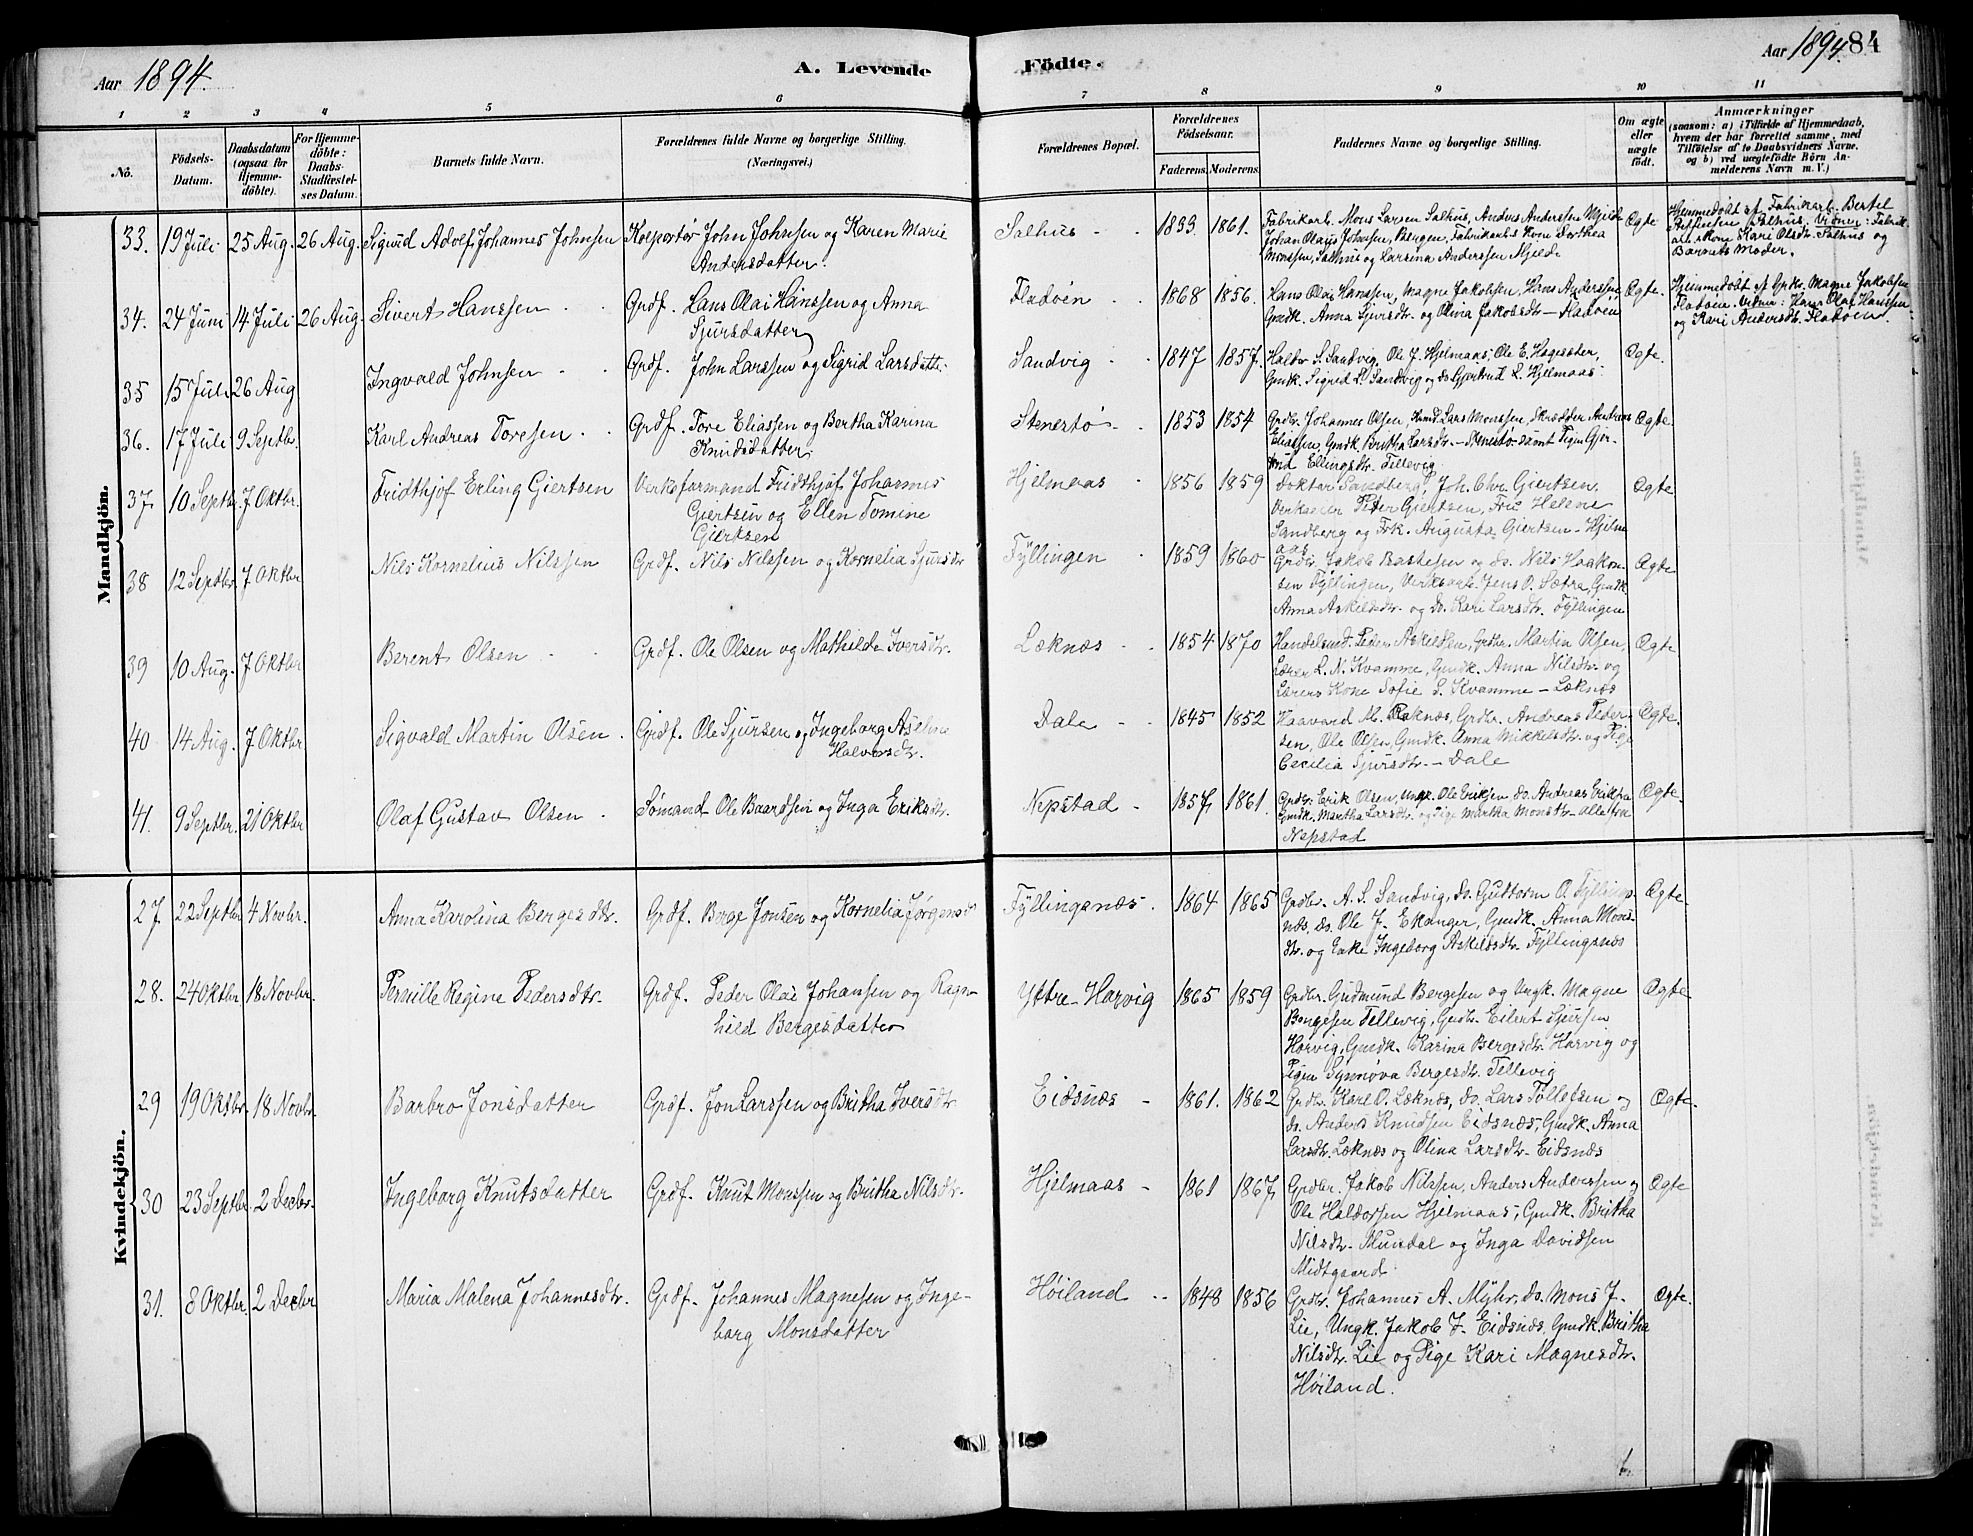 Aar 1894.
A. Levende
Födte.
Aar 1894. 84
1 2 3 4 5 6 7 8 9 10 11
No.
Födsels-
Datum.
Daabsdatum
(ogsaa for
Hjemme-
döbte).
For Hjemme-
döbte:
Daabs-
Stadfæstel-
ses Datum.
Barnets fulde Navn.
Forældrenes fulde Navne og borgerlige Stilling.
(Næringsvei.)
Forældrenes Bopæl.
Forældrenes
Födselsaar.
Faderens. Moderens.
Faddernes Navne og borgerlige Stilling.
Om ægte
eller
uægte
födt.
Anmærkninger
(saasom: a) i Tilfælde af Hjemmedaab,
hvem der har forrettet samme, med
Tilföielse af to Daabsvidners Navne,
og b) ved uægtefödte Börn An-
melderens Navn m. V.)
Mandkjön.
33. 19 Juli 25 Aug. 26 Aug. Sigurd Adolf Johannes Johnsen Kolportør John Johnsen og Karen Marie
Andersdatter.
Salhus 1833 1861. Fabrikarb. Mons Larsen Salhus, Anders Anderssen Mjelde
Johan Olaus Johnsen, Bergen, Fabrikarbs Kone Dorthea
Monssen, Salhus og Larsina Anderssen Mjelde
Ægte
Hjemmedöbt af Fabrikarb. Bertel
Salhus. Vidner: Fabrik-
arb.s Kone Kari Olsdtr. Salhus og
Barnets Moder.
34. 24 Juni 14 Juli 26 Aug. Sivert Hanssen Grdf. Hans Olai Hanssen og Anna
Sjursdatter
Fladöen 1868 1856. Hans Olai Hanssen, Magne Jakobsen, Hans Anderssen
Gmdk. Anna Sjursdtr. og Olina Jakobsdtr – Fladöen
Ægte.
Hjemmedöbt af Grbr. Magne Jakobsen
Fladöen. Vidner: Hans Olai Hanssen
og Kari Andersdtr. Fladöen.
35 15 Juli 26 Aug Ingvald Johnsen Grdf. John Larssen og Sigrid Larsdattr.
Sandvig 1847 1857. Haldor S. Sandvig, Ole J. Hjelmaas, Ole E. Hagesæter,
Gmdk. Sigrid L. Sandvig og do Gjertrud L. Hjelmaas.
Ægte
36. 17 Juli 9 Septbr. Karl Andreas Toresen Grdf. Tore Eliassen og Bertha Karina
Knudsdatter
Stenestø 1853 1854 Grdbr. Johannes Olsen, Lars Monssen, Skrædder Andreas
Eliassen, Gmdk Britha Larsdtr. – Stenestø samt Pigen Gjer-
trud Ellingsdtr. Tellevig
Ægte
37 10 Septbr 7 Oktbr. Fridthjof Erling Giertsen Verksformand Fridthjof Johannes
Giertsen og Ellen Tomine
Giertsen
Hjelmaas 1856 1859 Doktor Sandberg, Joh. Chr. Giertsen,
Verkseier Peter Giertsen, Fru Helene
Sandberg og Frk. Augusta Giertsen – Hjelm
aas
Ægte
38 12 Septbr. 7 Oktbr Nils Kornelius Nilssen Grdf. Nils Nilssen og Kornelia Sjursdtr
Fyllingen 1859 1860 Grdbr. Jakob Bastesen og do. Nils Haakon-
sen Fyllingen, Verksarb. Jens O. Sætra, Gmdk
Anna Askilsdtr. og do. Kari Larsdtr. Fyllingen
Ægte
39 10 Aug. 7 Oktbr Berent Olsen Grdf. Ole Olsen og Mathilde Iversdtr.
Læknæs 1854 1870 Handelsmd. Peder Askildsen, Grdbr. Martin Olsen,
Lærer L. N. Kvamme, Gmdk. Anna Nilsdtr og
Lærers Kone Sofie S. Kvamme – Læknæs
Ægte
40 14 Aug. 7 Oktbr Sigvald Martin Olsen Grdf. Ole Sjursen og Ingeborg Aseline
Halvorsdtr.
Dale 1845 1852 Haavard M. Læknæs, Grdbr. Andreas Peder-
sen, Ole Olsen, Gmdk. Anna Mikkelsdtr. og Pige
Cecilia Sjursdtr. – Dale
Ægte.
41. 9 Septbr. 21 Oktbr Olaf Gustav Olsen Sømand Ole Baardsen og Inga Eriksdtr.
Nepstad 1857 1861. Grdbr. Erik Olsen, Ungk. Ole Eriksen do. Andreas Eriksen
Gmdk. Martha Larsdtr. og Pige Martha Monsdtr. – alle fra
Nepstad
Ægte.
Kvindekjön.
27. 22 Septbr 4 Novbr. Anna Karolina Bergesdtr. Grdf. Berge Jonsen og Kornelia Jørgensd
Fyllingsnæs 1864 1865 Grdbr. A. S. Sandvig, do. Guttorm O. Fyllings-
næs. do. Ole J. Ekanger, Gmdk. Anna Mons-
dtr. og Enke Ingeborg Askildsdtr. Fyllingsnæs
Ægte
28. 24 Oktbr 18 Novbr. Pernille Regine Pedersdtr. Grdf. Peder Olai Johansen og Ragn-
hild Bergesdatter
Yttre-Horvig 1865 1859 Grdbr. Gudmund Bergesen og Ungk. Magne
Bergesen Tellevig, Grdbr. Eilert Sjursen
Horvig, Gmdk. Karina Bergesdtr. Horvig og
Pigen Synnøva Bergesdtr. Tellevig
Ægte
29 19 Oktbr. 18 Novbr. Barbro Jonsdatter Grdf. Jon Larssen og Britha Iversdtr
Eidsnæs 1861. 1862 Grdbr. Karl O. Læknæs, do. Lars Tollefsen og
do. Anders Knudsen Eidsnæs, Gmdk. Anna
Larsdtr. Læknæs og Olina Larsdtr. Eidsnæs
Ægte.
30 23 Septbr. 2 Decbr. Ingeborg Knutsdatter Grdf. Knut Monssen og Britha Nilsdtr.
Hjelmaas 1861 1867 Grdbr. Jakob Nilssen, Anders Anderssen og
Ole Haldorsen Hjelmaas, Gmdk. Britha
Nilsdtr. Mundal og Inga Davidsen
Midtgaard
Ægte
31. 8 Oktbr. 2 Decbr Maria Malena Johannesdtr. Grdf. Johannes Magnesen og Inge-
borg Monsdatter
Høiland 1848 1856 Grdbr. Johannes A. Myhr, do. Mons J.
Lie, Ungk. Jakob J. Eidsnæs, Gmdk. Britha
Nilsdtr. Lie og Pige Kari Magnesdtr.
Høiland.
Ægte.